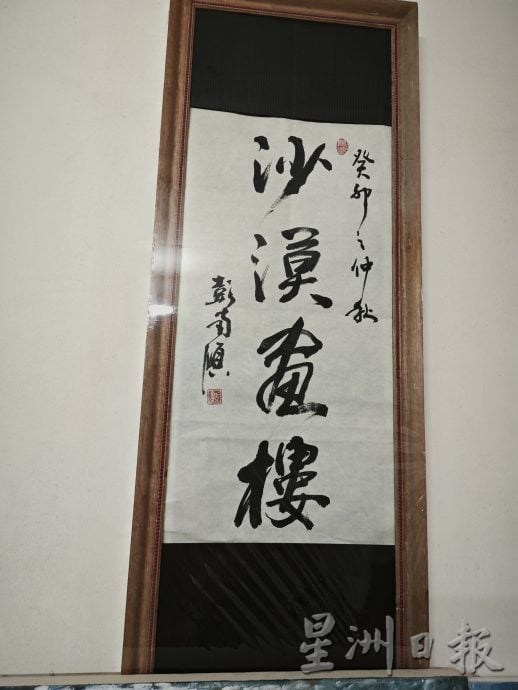 癸卯之仲秋
沙漠画楼
彭南順
星洲日報